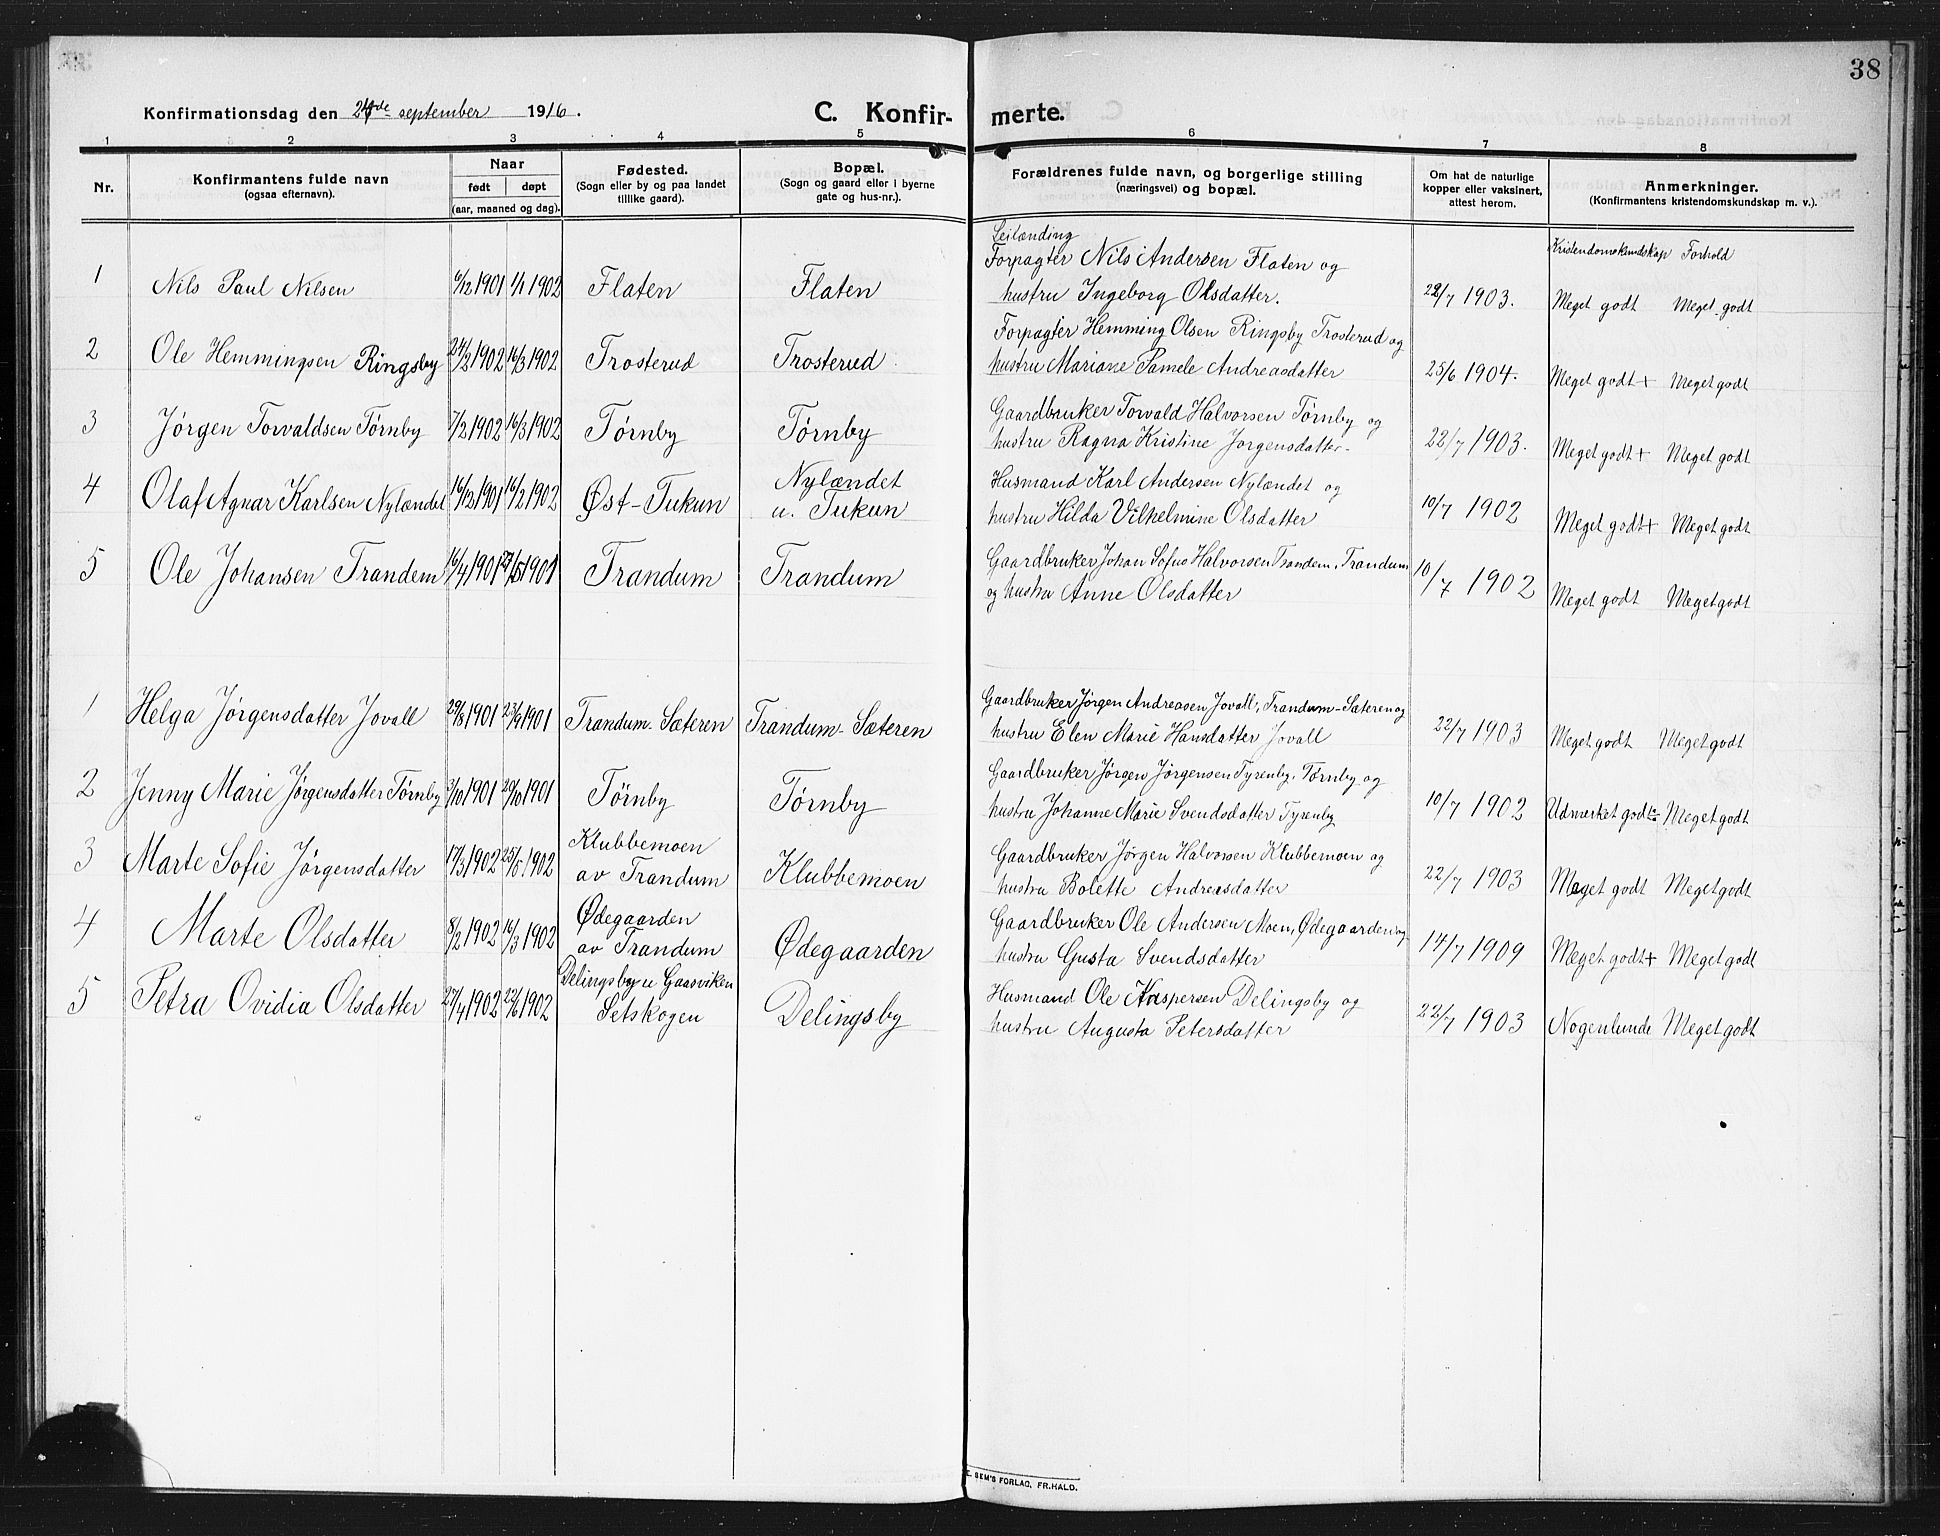 38
Konfirmationsdag den 24de september 1916. C. Konfir- merte.
1 2 3 4 5 6 7 8
Nr. Konfirmantens fulde navn (ogsaa efternavn). Naar født døpt (aar, maaned og dag). Fødested. (Sogn eller by og paa landet tillike gaard). Bopæl. (Sogn og gaard eller i byerne gate og hus-nr.). Forældrenes fulde navn, og borgerlige stilling (næringsvei) og bopæl. Om hat de naturlige kopper eller vaksinert, attest herom. Anmerkninger. (Konfirmantens kristendomskundskap m. v.).
Leilænding Kristendomskundskap Forhold
1 Nils Paul Nilsen 6/12 1901 1/1 1902 Flaten Flaten Forpagter Nils Andersen Flaten og
hustru Ingeborg Olsdatter. 22/7 1903. Meget godt Meget godt
2 Ole Hemmingsen Ringsby 24/2 1902 16/3 1902 Trosterud Trosterud Forpagter Hemming Olsen Ringsby Trosterud og
hustru Mariane Pamele Andreasdatter 25/6 1904. Meget godt + Meget godt
3 Jørgen Torvaldsen Tørnby 7/2 1902 16/3 1902 Tørnby Tørnby Gaardbruker Torvald Halvorsen Tørnby og
hustru Ragna Kristine Jørgensdatter. 22/7 1903. Meget godt + Meget godt
4 Olaf Agnar Karlsen Nylændet 16/12 1901 16/2 1902 Øst-Tukun Nylændet
u. Tukun Husmand Karl Andersen Nylændet og
hustru Hilda Vilhelmine Olsdatter 10/7 1902 Meget godt + Meget godt
5 Ole Johansen Trandem 16/4 1901 27/5 1901 Trandum Trandum Gaardbruker Johan Sofus Halvorsen Trandem, Trandum
og hustru Anne Olsdatter 10/7 1902 Meget godt Meget godt
1 Helga Jørgensdatter Jovall 29/8 1901 23/9 1901 Trandum-Sæteren Trandum-Sæteren Gaardbruker Jørgen Andreasen Jovall, Trandum-Sæteren og
hustru Elen Marie Hansdatter Jovall 22/7 1903 Meget godt Meget godt
2 Jenny Marie Jørgensdatter Tørnby 3/10 1901 20/10 1901 Tørnby Tørnby Gaardbruker Jørgen Jørgensen Tyrenby, Tørnby og
hustru Johanne Marie Svendsdatter Tyrenby 10/7 1902 Udmerket godt Meget godt
3 Marte Sofie Jørgensdatter 17/3 1902 25/5 1902 Klubbemoen
av Trandum Klubbemoen Gaardbruker Jørgen Halvorsen Klubbemoen og
hustru Bolette Andreasdatter 22/7 1903 Meget godt Meget godt
4 Marte Olsdatter 8/2 1902 16/3 1902 Ødegaarden
av Trandum Ødegaarden Gaardbruker Ole Andersen Moen, Ødegaarden og
hustru Gusta Svendsdatter 14/7 1909 Meget godt + Meget godt
5 Petra Ovidia Olsdatter 27/4 1902 22/6 1902 Delingsby u Gaasviken
Setskogen Delingsby Husmand Ole Kaspersen Delingsby og
hustru Augusta Petersdatter 22/7 1903 Nogenlunde Meget godt
E. SEM'S FORLAG, FR.HALD.